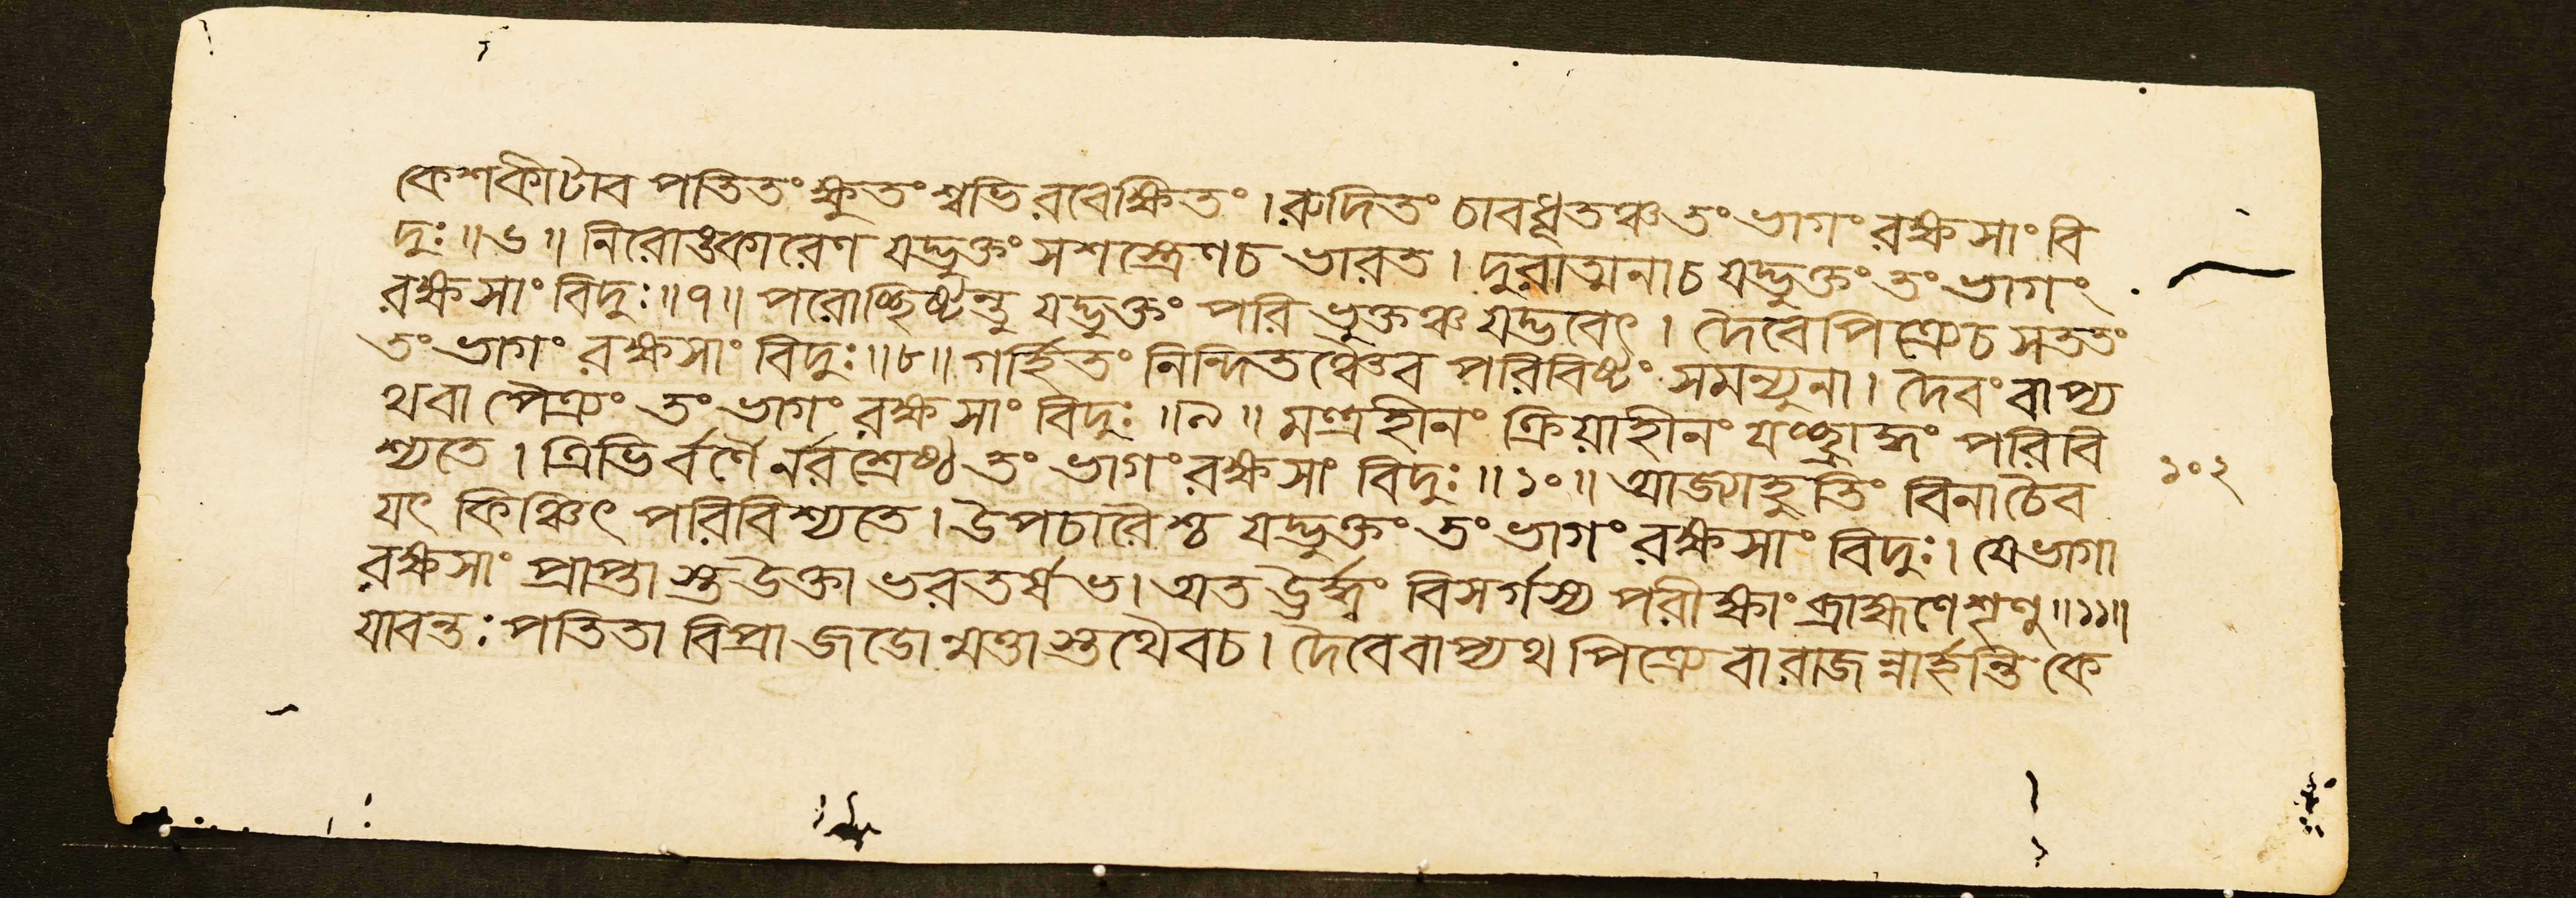 কেশকীটাবপতিতং ক্ষুতং শ্বভিরবেক্ষিতং। রুদিতং চাবধূতঞ্চ তং ভাগং রক্ষসাং বি
দুঃ॥৬॥ নিরোঙকারেণ যদ্ভুক্তং সশস্ত্রেণ চ ভারত। দুরাত্মনা চ যদ্ভুক্তং তং ভাগং
রক্ষসাং বিদুঃ॥৭॥ পরোচ্ছিষ্টন্তু যদ্ভুক্তং পরিভুক্তঞ্চ যদ্ভবেৎ। দৈবে পিত্রে চ সততং
তং ভাগং রক্ষসাং বিদুঃ॥৮॥ গর্হিতং নিন্দিতঞ্চৈব পরিবিষ্টং সমন্যুনা। দৈবং বাপ্য
থবা পৈত্রং তং ভাগং রক্ষসাং বিদুঃ॥৯॥ মন্ত্রহীনং ক্রিয়াহীনং যচ্ছ্রাদ্ধং পরিবি
শ্যতে। ত্রিভির্বর্ণৈর্নরশ্রেষ্ঠ তং ভাগং রক্ষসাং বিদুঃ॥১০॥ আজ্যাহুতিং বিনা চৈব
যৎ কিঞ্চিৎ পরিবিশ্যতে। উপচারৈশ্চ যদ্ভুক্তং তং ভাগং রক্ষসাং বিদুঃ। যে ভাগা
রক্ষসাং প্রাপ্তাস্ত উক্তা ভরতর্ষভ। অত ঊর্দ্ধ্বং বিসর্গস্য পরীক্ষাং ব্রাহ্মণে শৃণু॥১১॥
যাবন্তঃ পতিতা বিপ্রা জডোন্মত্তাস্তথৈব চ। দৈবে বাপ্যথ পিত্রে বা রাজন্নার্হন্তি কে
১০২